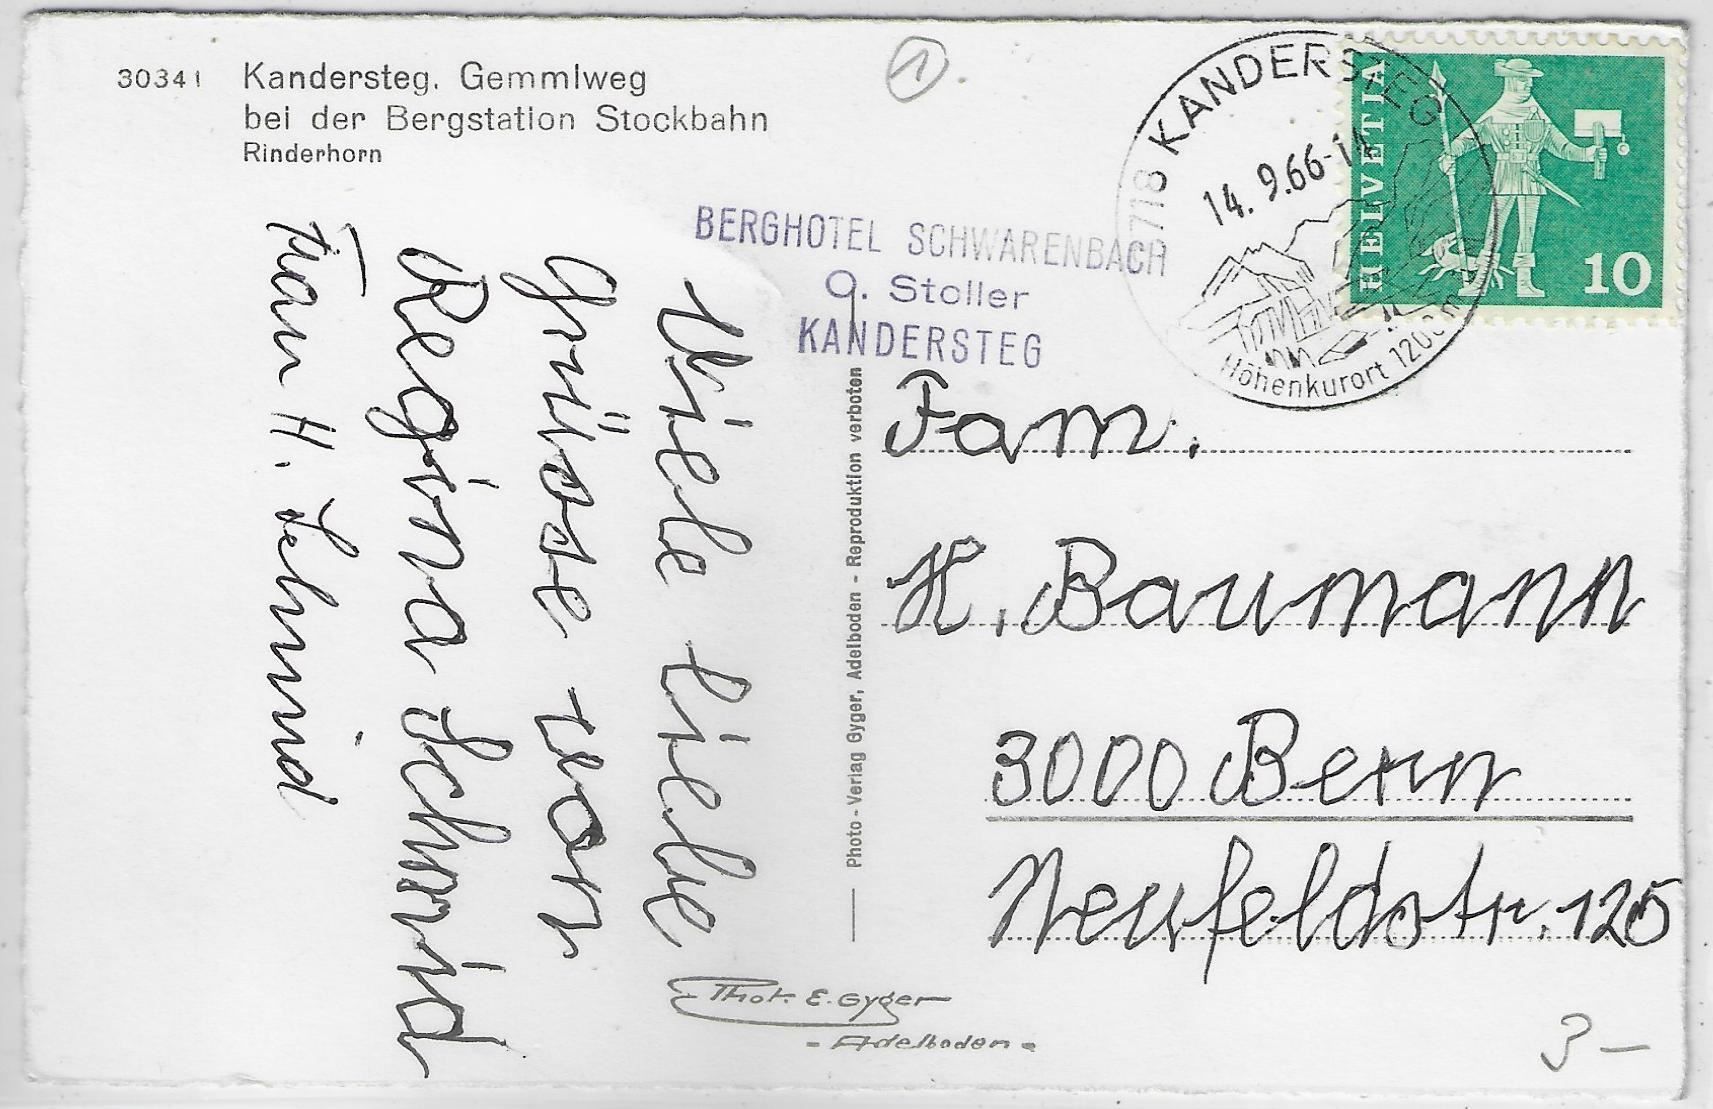 30341 Kandersteg. Gemmiweg
bei der Bergstation Stockbahn
Rinderhorn
1
3718 KANDERSTEG
14. 9.66-11
Höhenkurort 1200m
HELVETIA
10
BERGHOTEL SCHWARENBACH
G. Stoller
KANDERSTEG
Viele liebe
Grüsse von
Regina Schmid
Frau H. Schmid
Photo - Verlag Gyger, Adelboden - Reproduktion verboten
Fam.
H. Baumann
3000 Bern
Neufeldstr. 125
Phot. E. Gyger
- Adelboden -
3 -